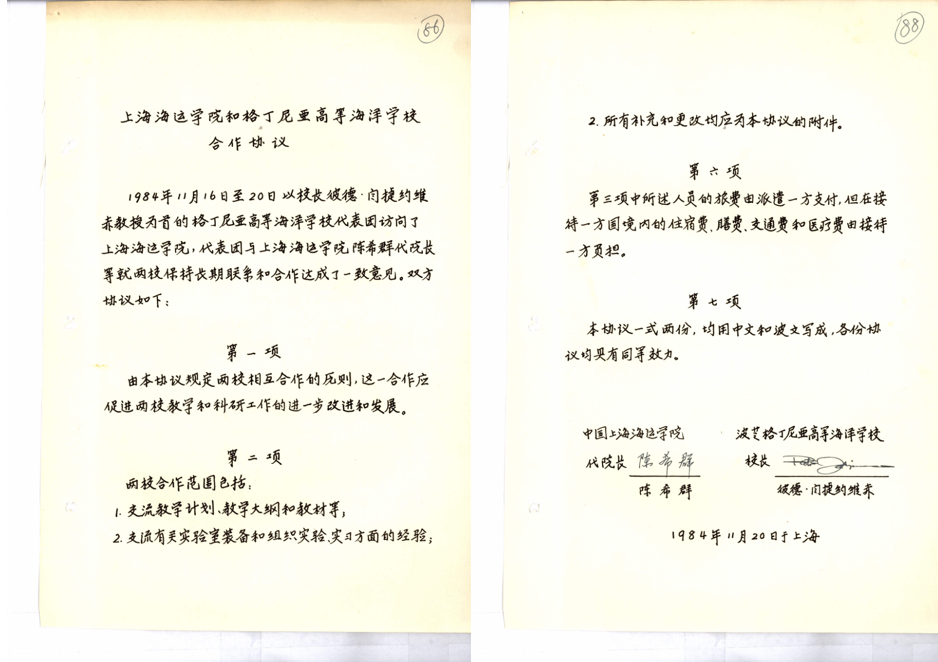 86
上海海运学院和格丁尼亚高等海洋学校
合作协议
1984年11月16日至20日以校长彼德·闩捷约维
赤教授为首的格丁尼亚高等海洋学校代表团访问了
上海海运学院，代表团与上海海运学院陈希群代院长
等就两校保持长期联系和合作达成了一致意见。双方
协议如下：
第一项
由本协议规定两校相互合作的原则，这一合作应
促进两校教学和科研工作的进一步改进和发展。
第二项
两校合作范围包括：
1. 交流教学计划、教学大纲和教材等；
2. 交流有关实验室装备和组织实验、实习方面的经验；
88
2. 所有补充和更改均应为本协议的附件。
第六项
第三项中所述人员的旅费由派遣一方支付，但在接
待一方国境内的住宿费、膳费、交通费和医疗费由接待
一方负担。
第七项
本协议一式两份，均用中文和波文写成，各份协
议均具有同等效力。
中国上海海运学院
代院长 陈希群
陈希群
波兰格丁尼亚高等海洋学校
校长
彼德·闩捷约维赤
1984年11月20日于上海